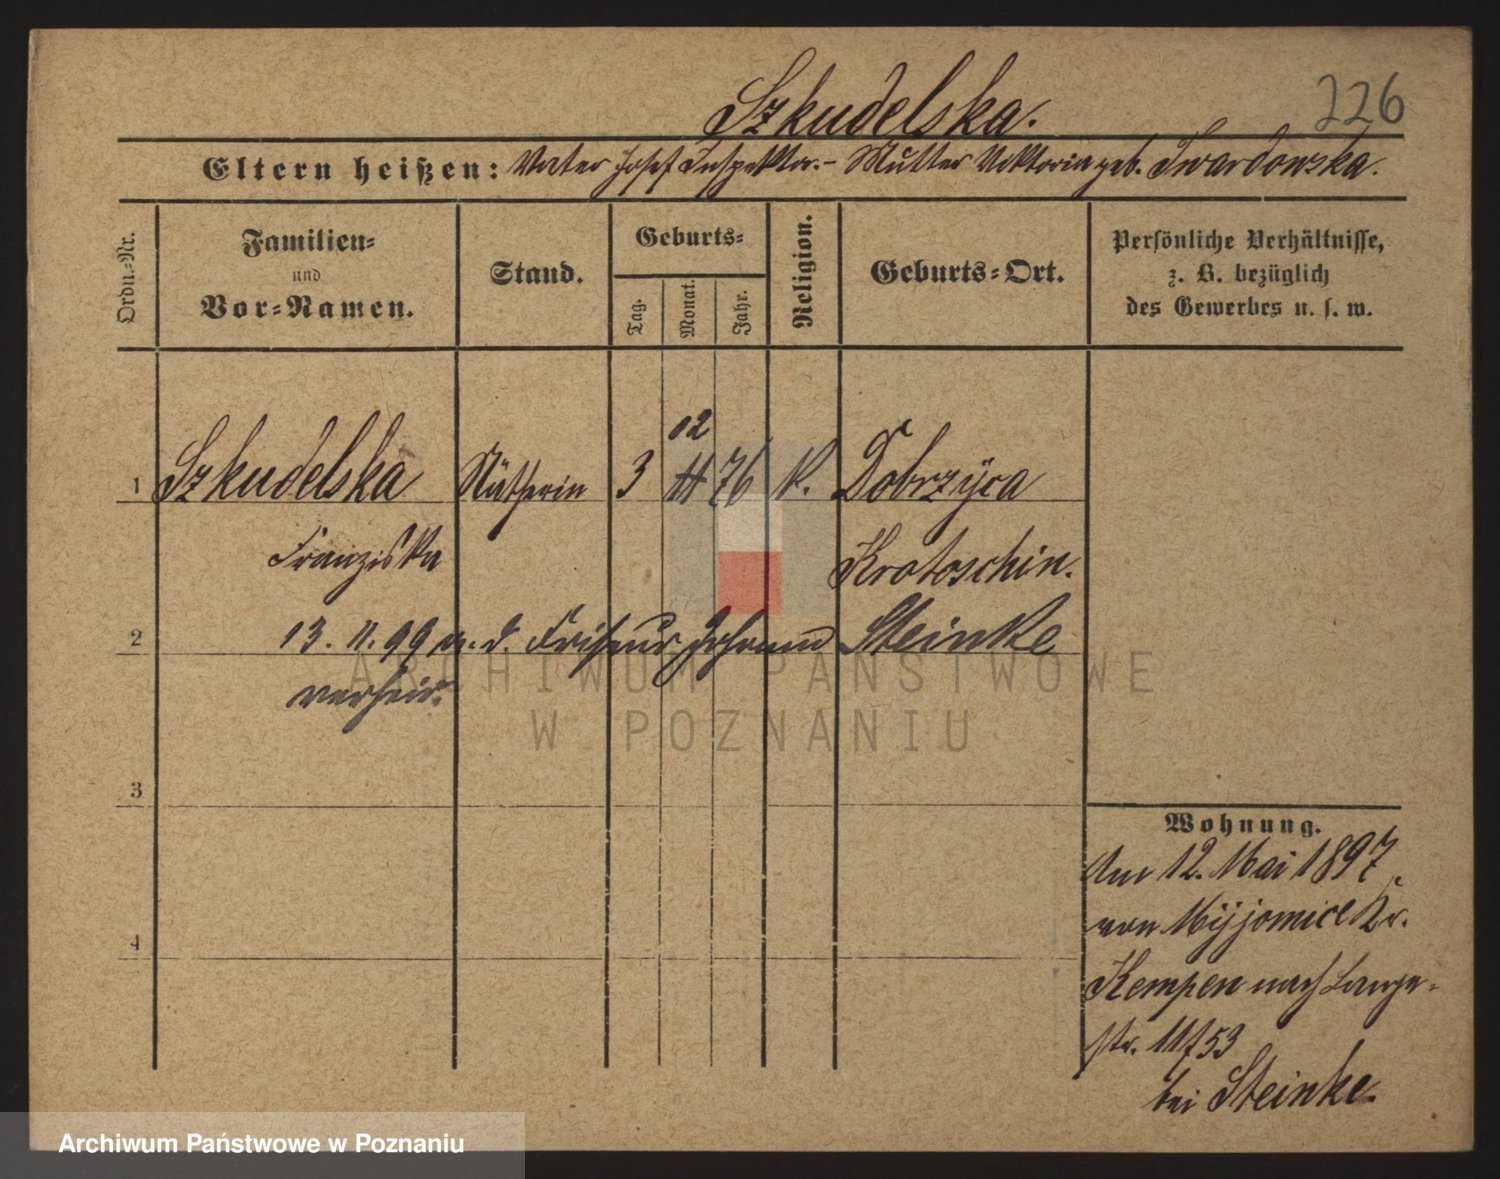 226
Szkudelska.
Eltern heißen: Vater Josef Inspektor. - Mutter Viktoria geb. Twardowska.
Ordn.-Nr.
Familien-
und
Vor-Namen.
Stand.
Geburts-
Tag.
Monat.
Jahr.
Religion.
Geburts-Ort.
Persönliche Verhältnisse,
z. B. bezüglich
des Gewerbes u. s. w.
12
1 Szkudelska Nätherin 3 11 76 K. Dobrzyca
Franziska Krotoschin.
2 13. 11. 99 m. d. Friseur Johann Steinke
verheir.
3
4
Wohnung.
Am 12. Mai 1897
von Myjomice Kr.
Kempen nach Lange-
str. 11/53
bei Steinke.
ARCHIWUM PAŃSTWOWE
W POZNANIU
Archiwum Państwowe w Poznaniu